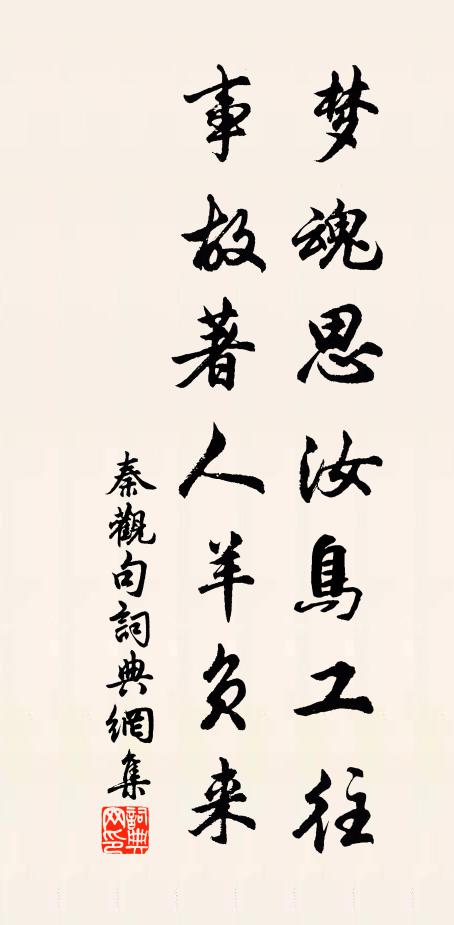 梦魂思汝鳥工往
事故著人羊負来
秦觀句詞典網集
詞典网印